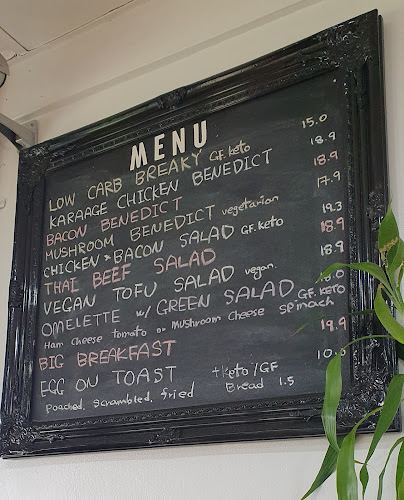 MENU
LOW CARB BREAKY GF. keto 15.0
KARAAGE CHICKEN BENEDICT 18.9
BACON BENEDICT 18.9
MUSHROOM BENEDICT vegetarian 17.9
CHICKEN & BACON SALAD GF. keto 19.3
THAI BEEF SALAD 18.9
VEGAN TOFU SALAD vegan. 18.9
OMELETTE w/ GREEN SALAD GF. KETO
Ham Cheese tomato or Mushroom Cheese spinach
BIG BREAKFAST 19.9
EGG ON TOAST +keto/GF
Poached, scrambled, fried Bread 1.5